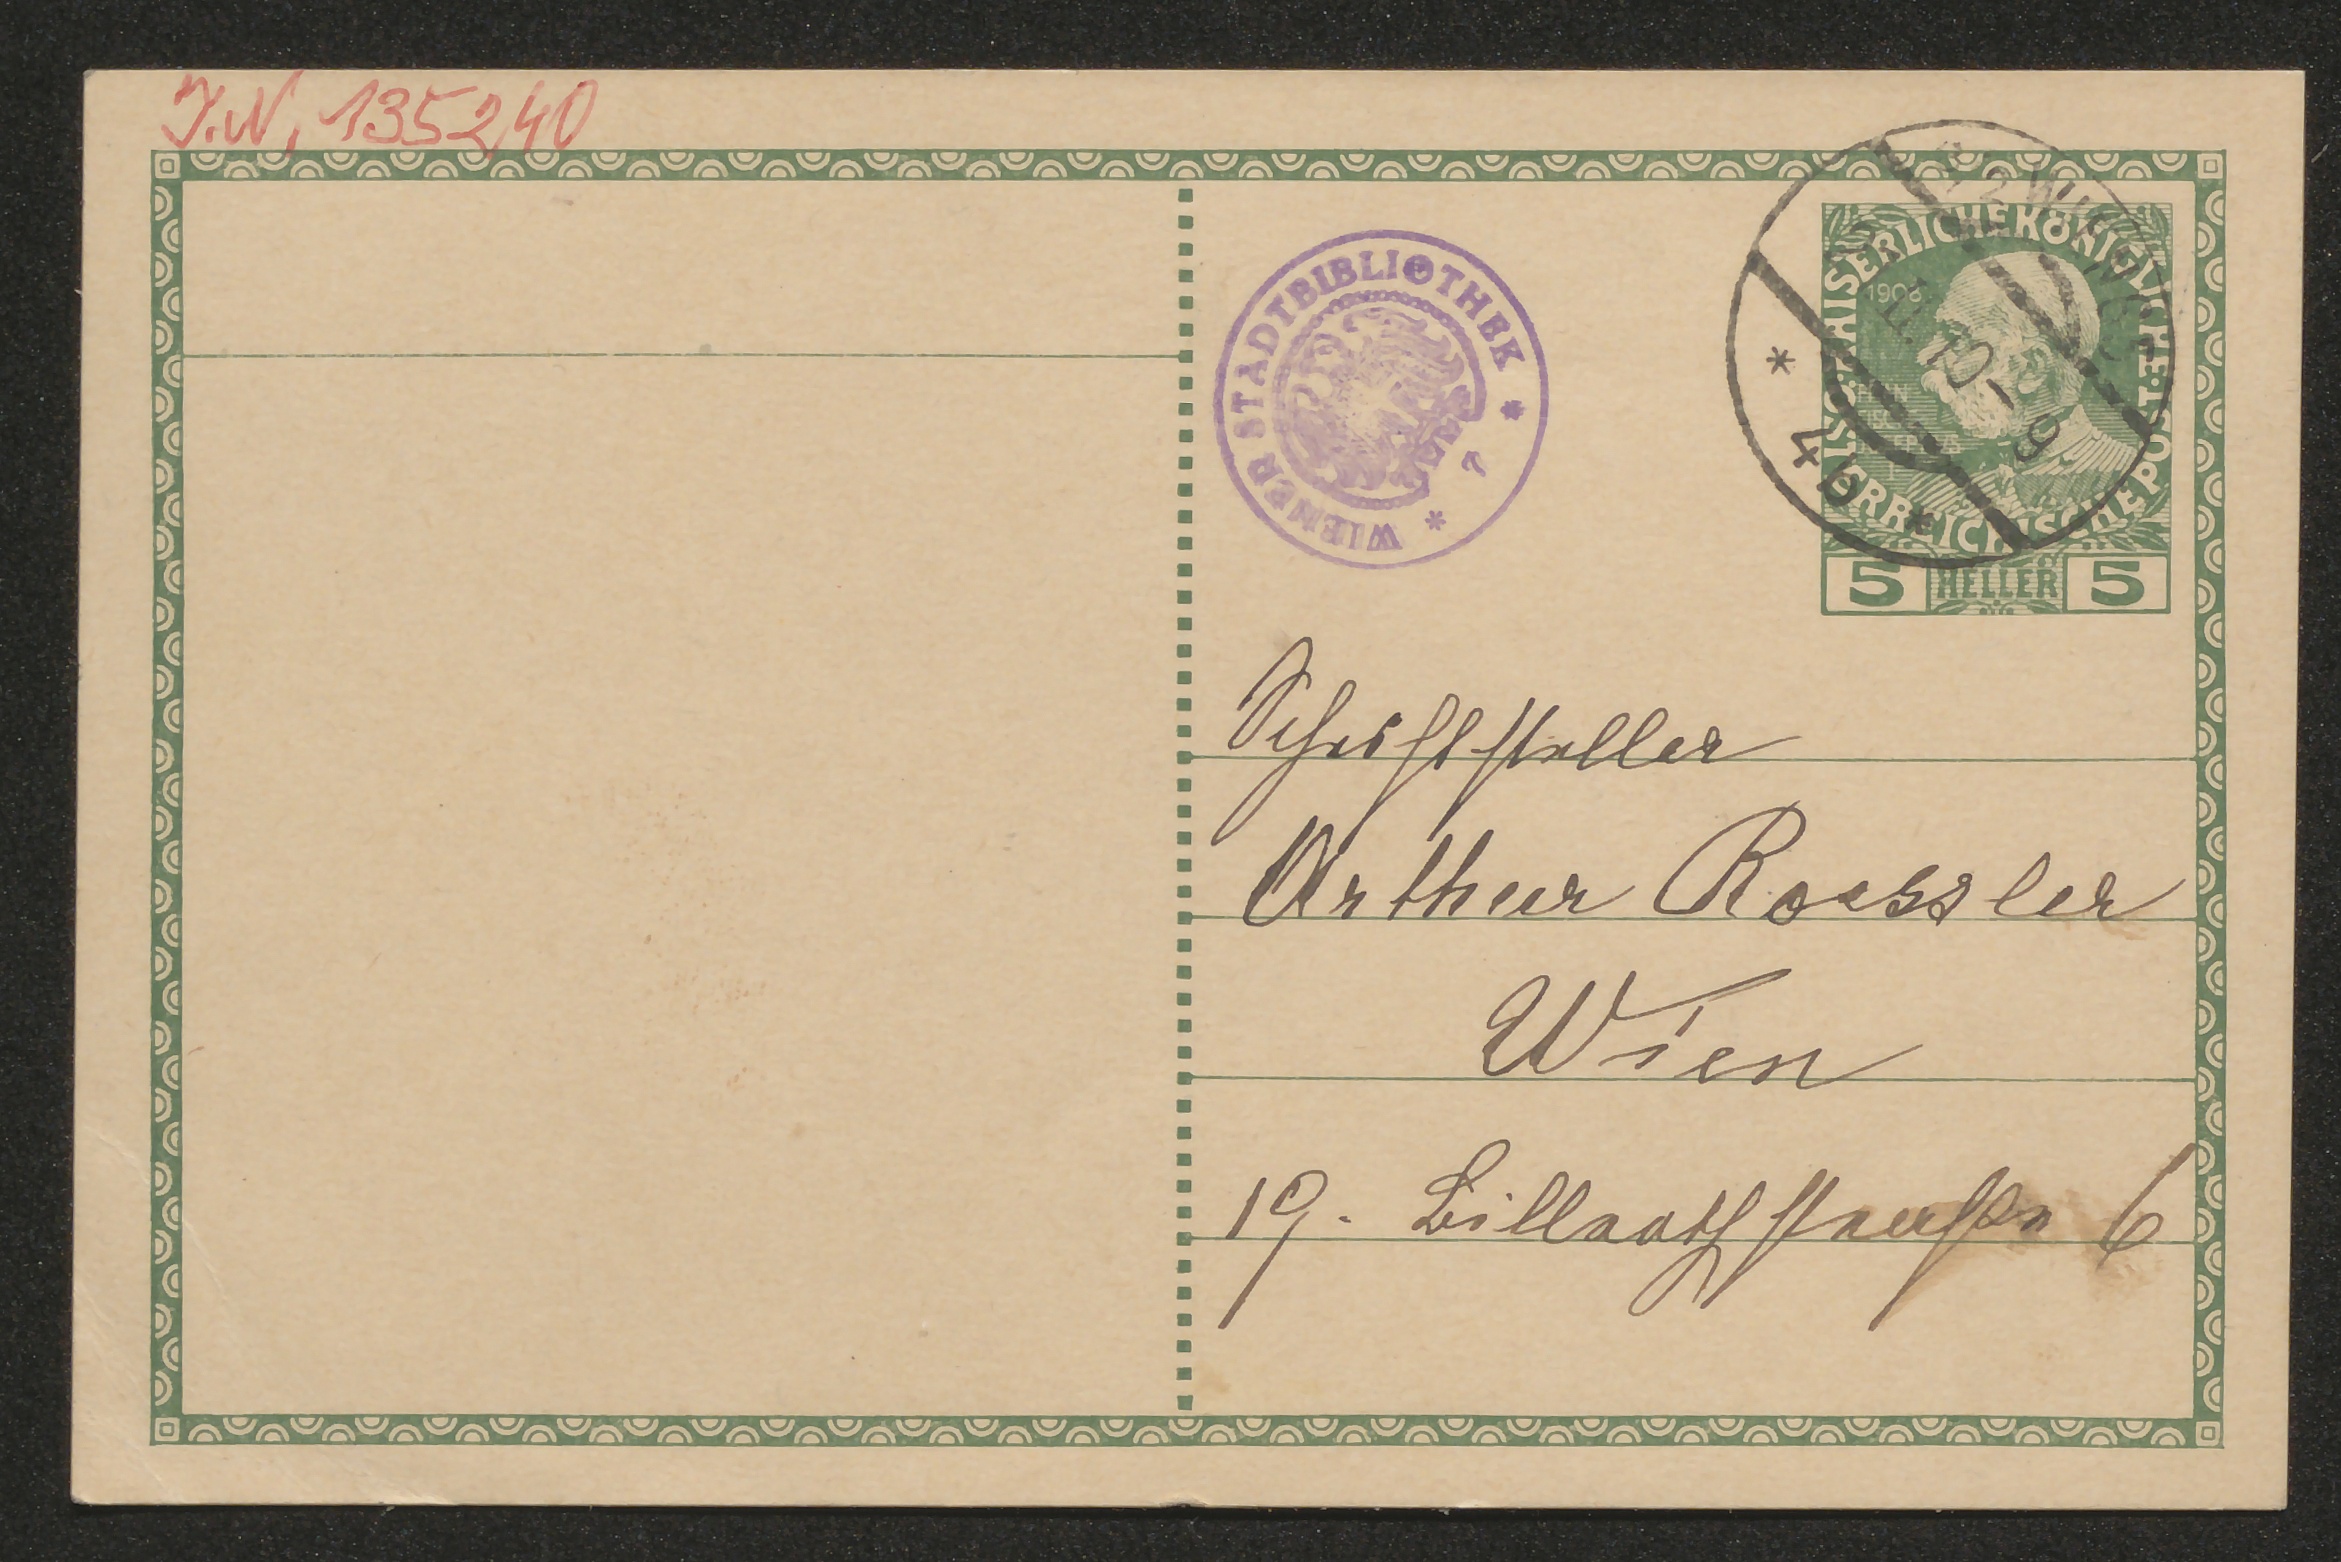 J.N. 135240
WIENER STADTBIBLIOTHEK
KAISERLICHE KÖNIGLICHE
ÖSTERREICHISCHE POST
1908
5 HELLER 5
12 WIEN
II. 10 - 9
4b
Schriftsteller
Arthur Roessler
Wien
19. Billrothstraße 6